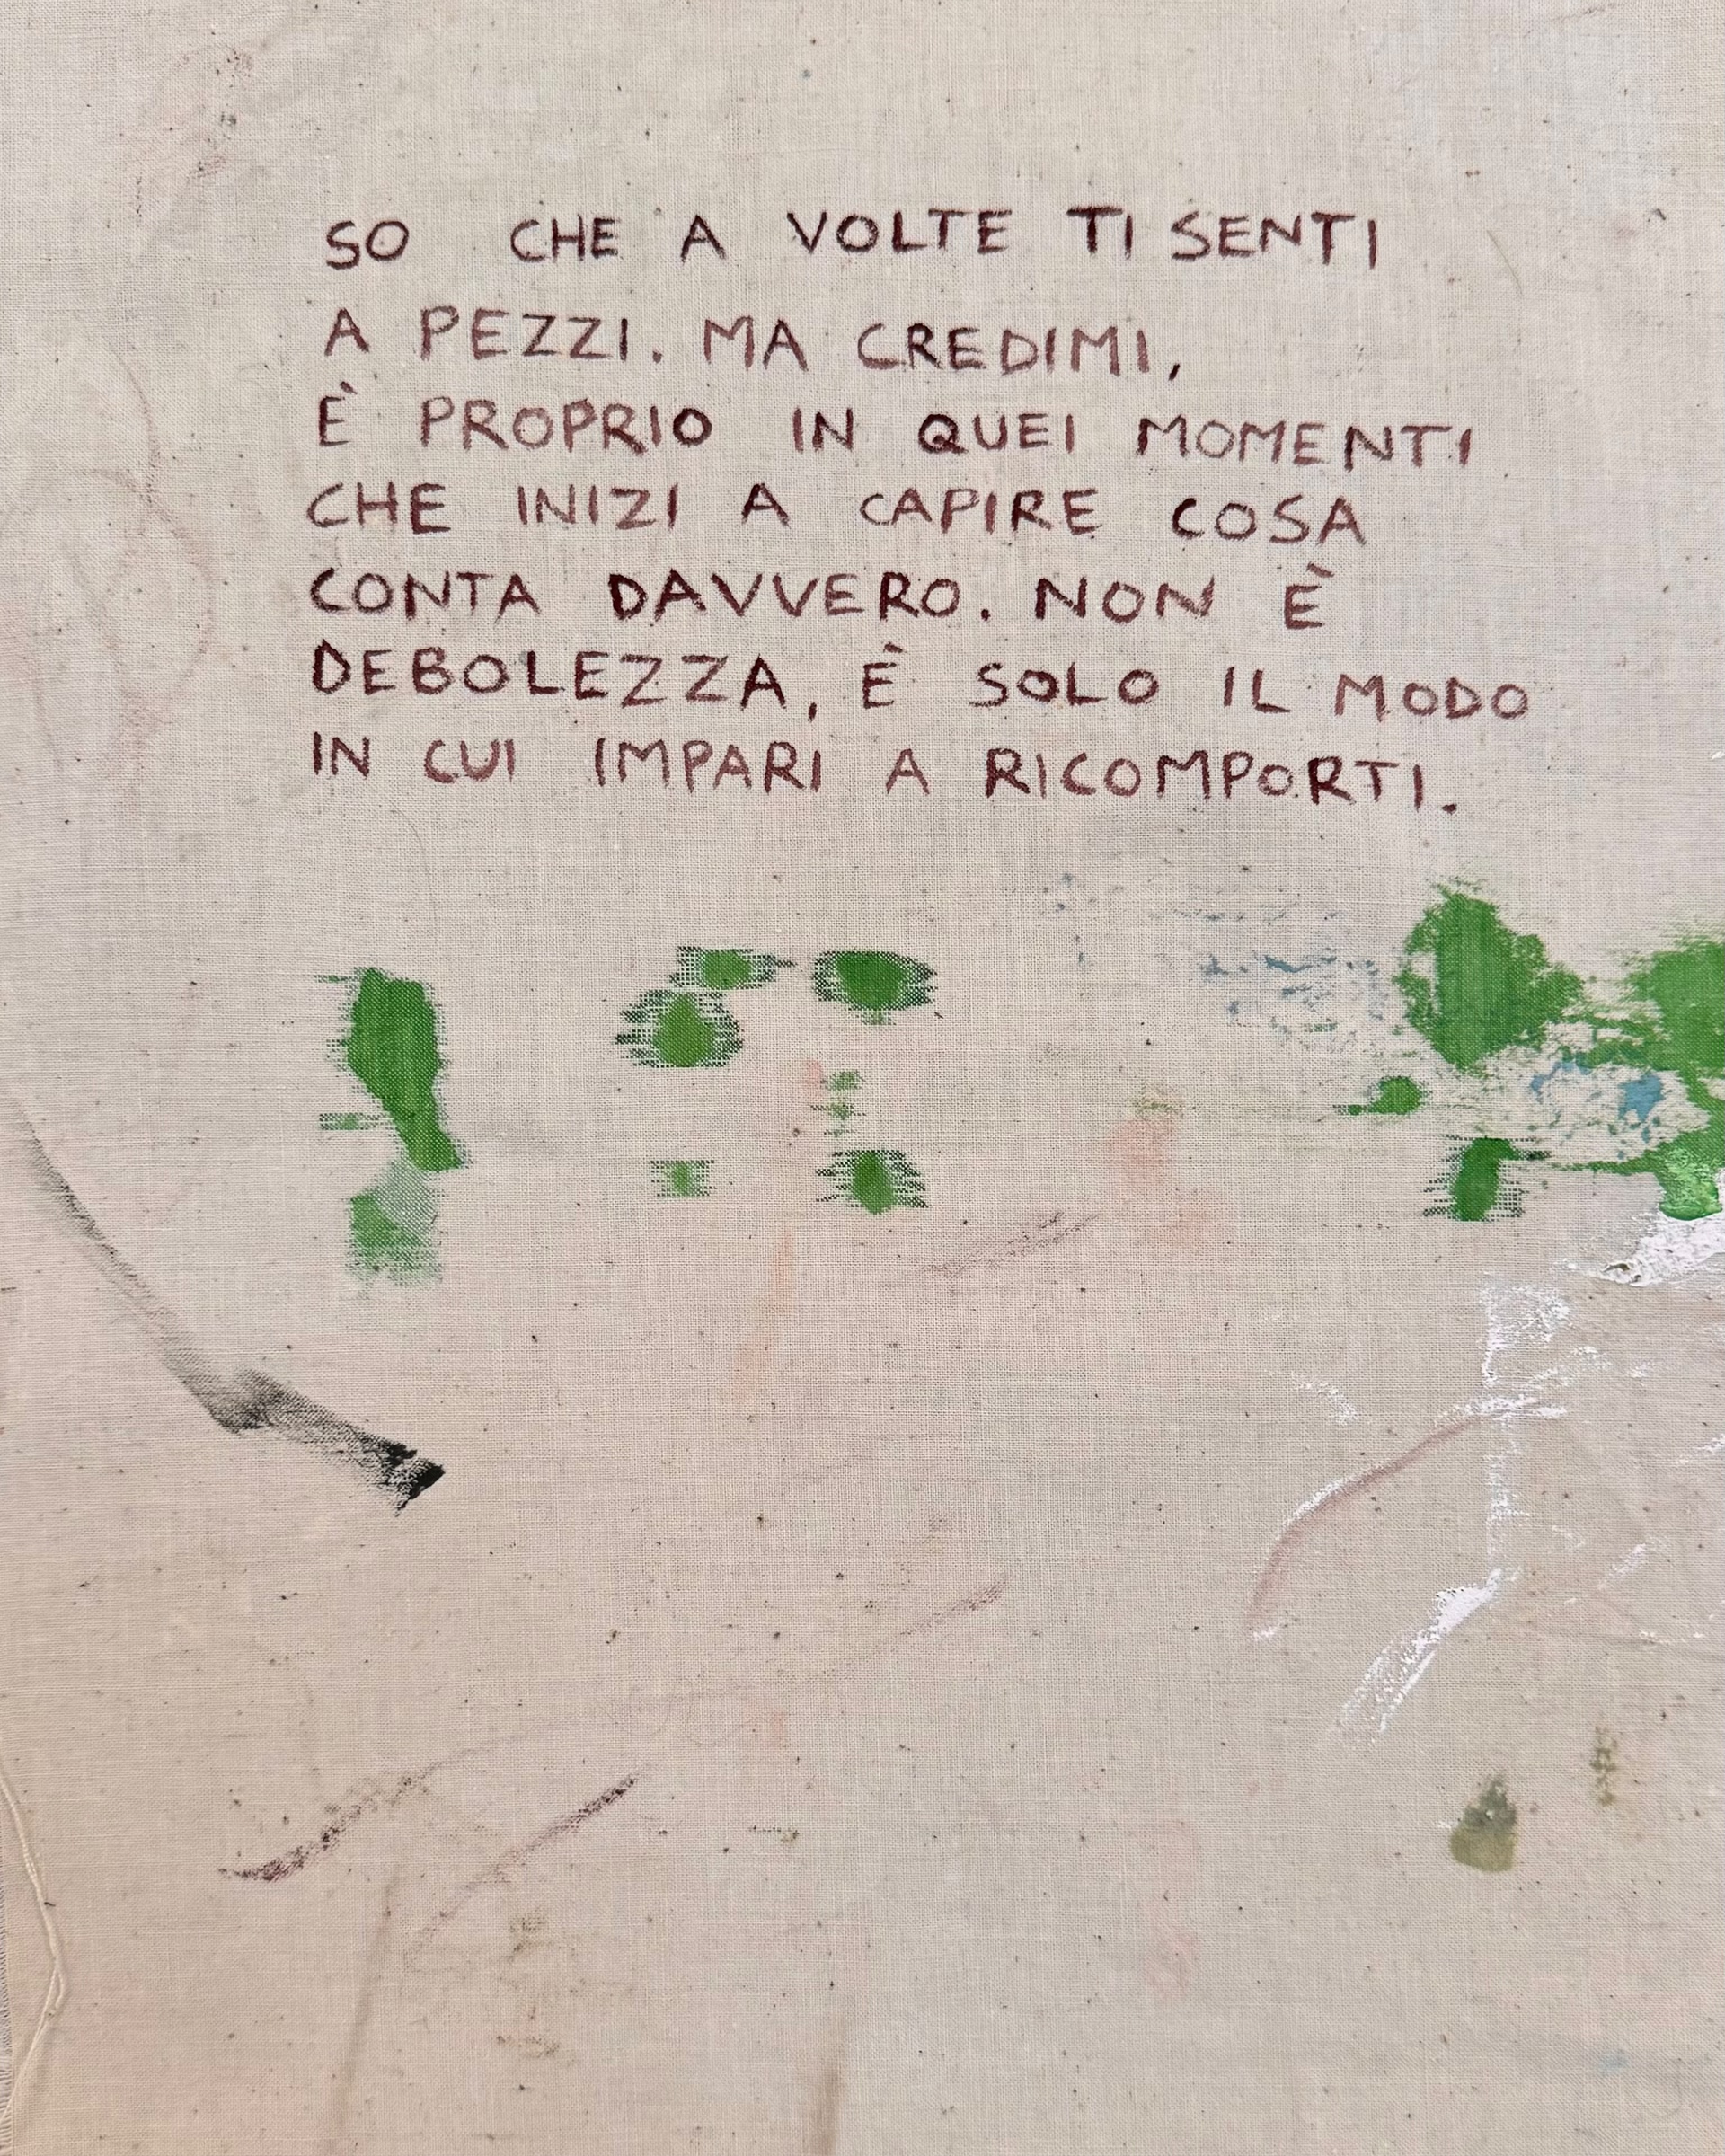 SO CHE A VOLTE TI SENTI
A PEZZI. MA CREDIMI,
È PROPRIO IN QUEI MOMENTI
CHE INIZI A CAPIRE COSA
CONTA DAVVERO. NON È
DEBOLEZZA, È SOLO IL MODO
IN CUI IMPARI A RICOMPORTI.